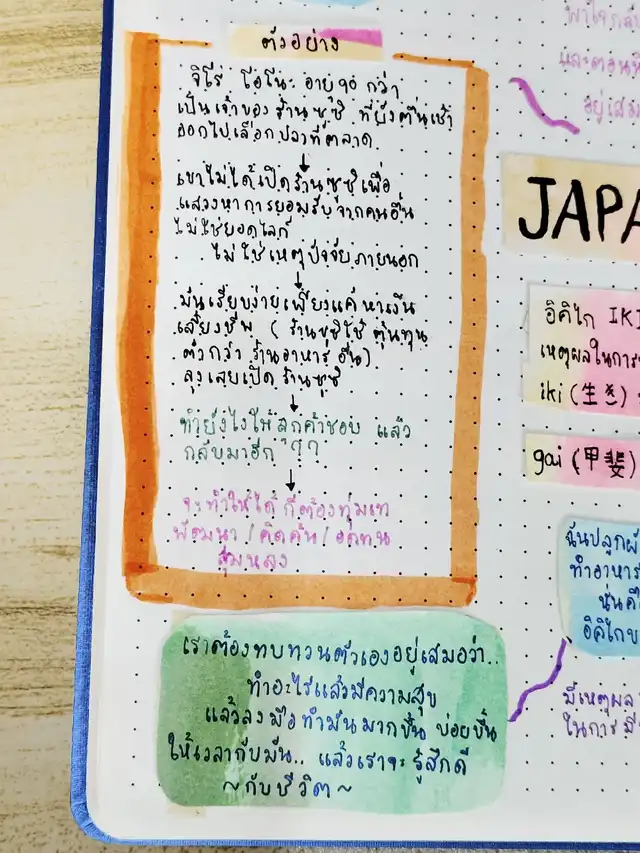 ตัวอย่าง
จิโร่ โอโนะ อายุ 90 กว่า
เป็นเจ้าของร้านซูชิ ที่ยังตื่นเช้า
ออกไปเลือกปลาที่ตลาด
เขาไม่ได้เปิดร้านซูชิเพื่อ
แสวงหาการยอมรับจากคนอื่น
ไม่ใช่ยอดไลก์
ไม่ใช่เหตุปัจจัยภายนอก
มันเรียบง่ายเพียงแค่หาเงิน
เลี้ยงชีพ ( ร้านซูชิใช้ต้นทุน
ต่ำกว่า ร้านอาหารอื่น)
ลุงเลยเปิดร้านซูชิ
ทำยังไงให้ลูกค้าชอบ แล้ว
กลับมาอีก ??
จะทำให้ได้ ก็ต้องทุ่มเท
พัฒนา / คิดค้น / อดทน
ลุ่มหลง
เราต้องทบทวนตัวเองอยู่เสมอว่า..
ทำอะไรแล้วมีความสุข
แล้วลงมือทำมันมากขึ้น บ่อยขึ้น
ให้เวลากับมัน.. แล้วเราจะรู้สึกดี
~กับชีวิต~
และตอนที่
อยู่เสม
JAPA
อิคิไก IKI
เหตุผลในการ
iki (生き)
gai (甲斐)
ฉันปลูกผั
ทำอาหาร
นั่นคื
อิคิไกข
มีเหตุผล
ในการมี